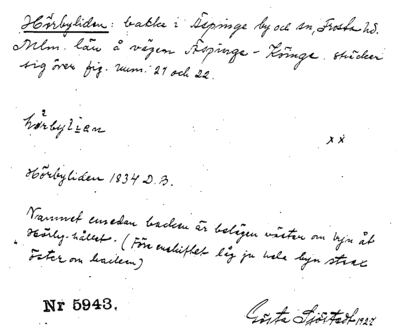 Hörbyliden: backe i Äspinge by och sn, Frosta hd.
Mlm. län å vägen Äspinge - Köinge. sträcker
sig över fig. num: 21 och 22.
hörbylian
x x
Hörbyliden 1834 D.B.
Namnet emedan backen är belägen väster om byn åt
Hörby-hållet. (Före enskiftet låg ju hela byn strax
öster om backen)
Nr 5943.
Gösta Sjöstedt 1927